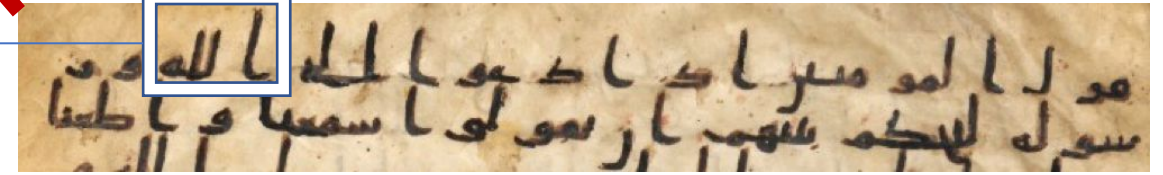 قول المومنين اذا دعوا الى الله ور
سوله ليحكم بينهم ان يقولوا سمعنا واطعنا